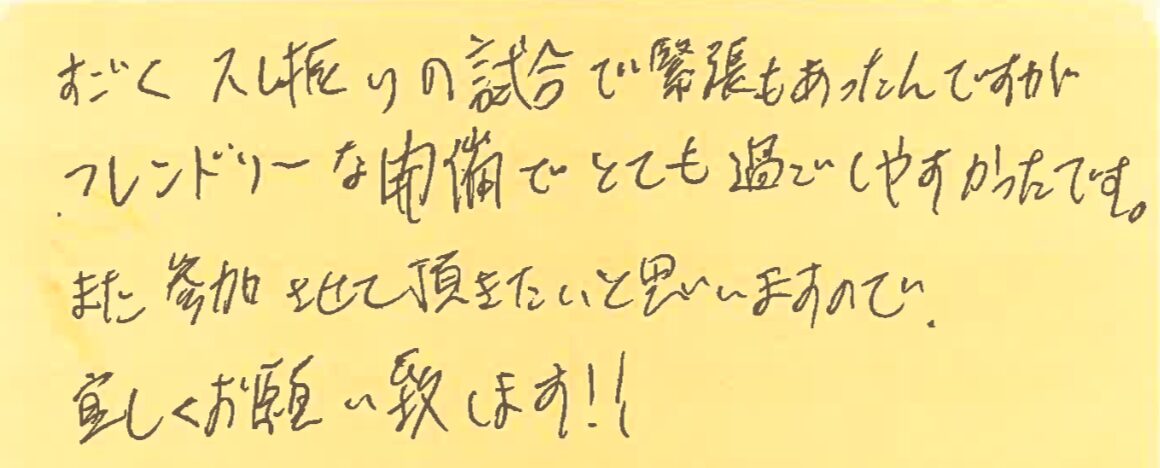 すごく久し振りの試合で緊張もあったんですが
フレンドリーな開催でとても過ごしやすかったです。
また参加させて頂きたいと思いいますので、
宜しくお願い致します!!